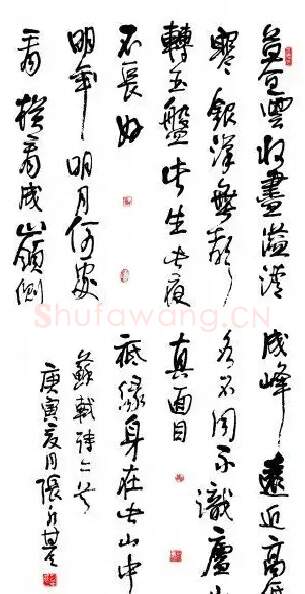 暮雲收盡溢清
寒銀漢無聲
轉玉盤此生此夜
不長好
明年明月何處
看橫看成嶺側
Shufawang.CN
成峰遠近高低
各不同不識廬山
真面目
祇緣身在此山中
蘇軾詩二首
庚寅夏月張